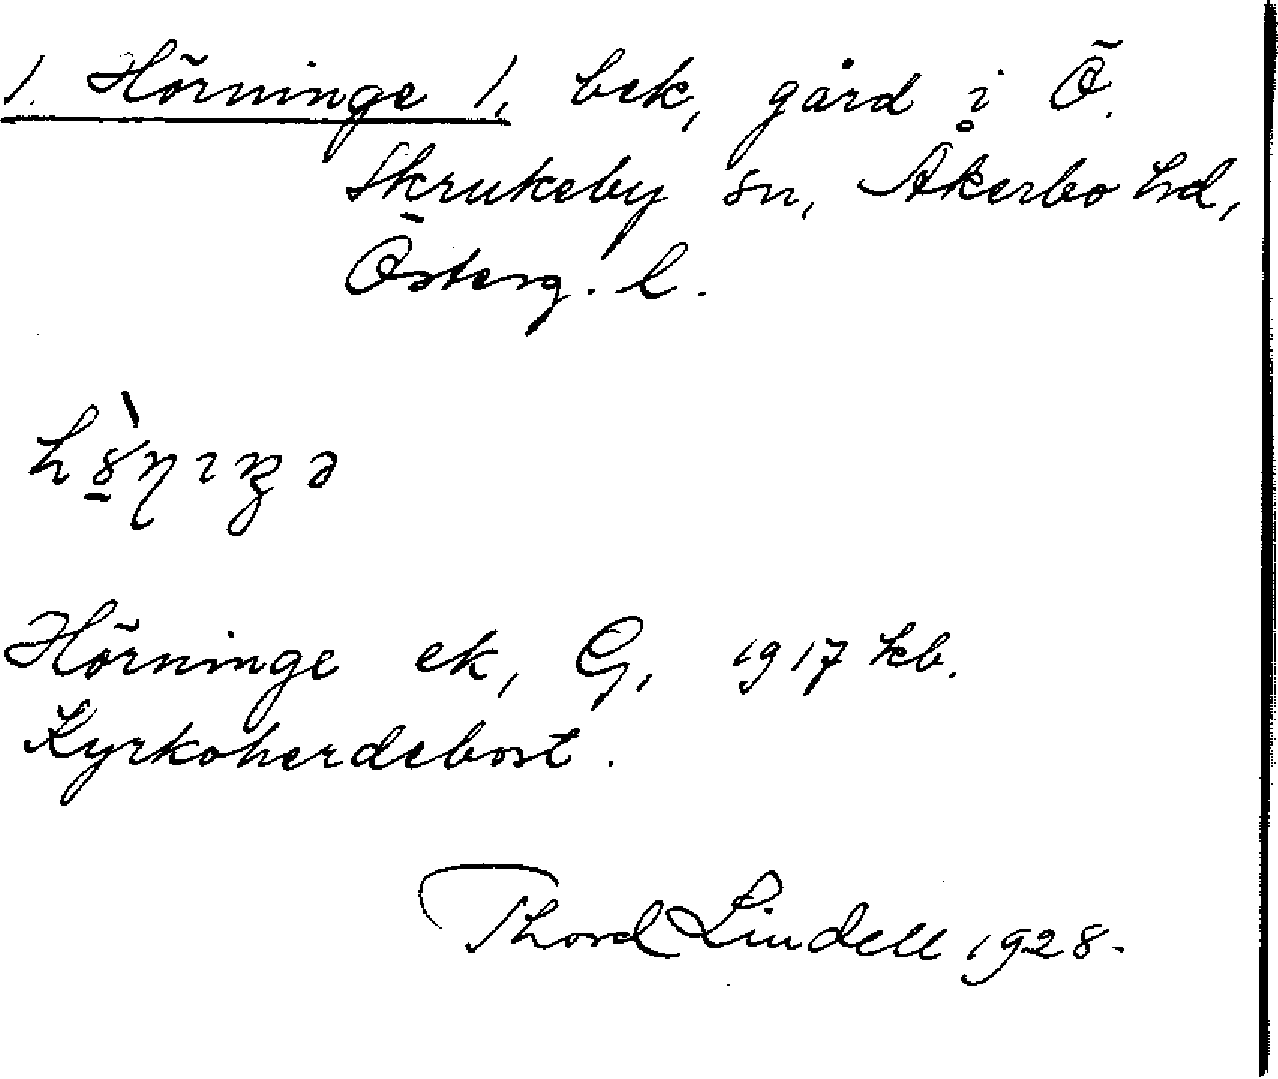 1. Hörninge 1, bek, gård i̥ Ö.
Skrukeby sn, Åkerbo hd,
Österg. l.
Hörninge ek, G, 1917 kb.
Kyrkoherdebost.
Thord Lindell 1928.